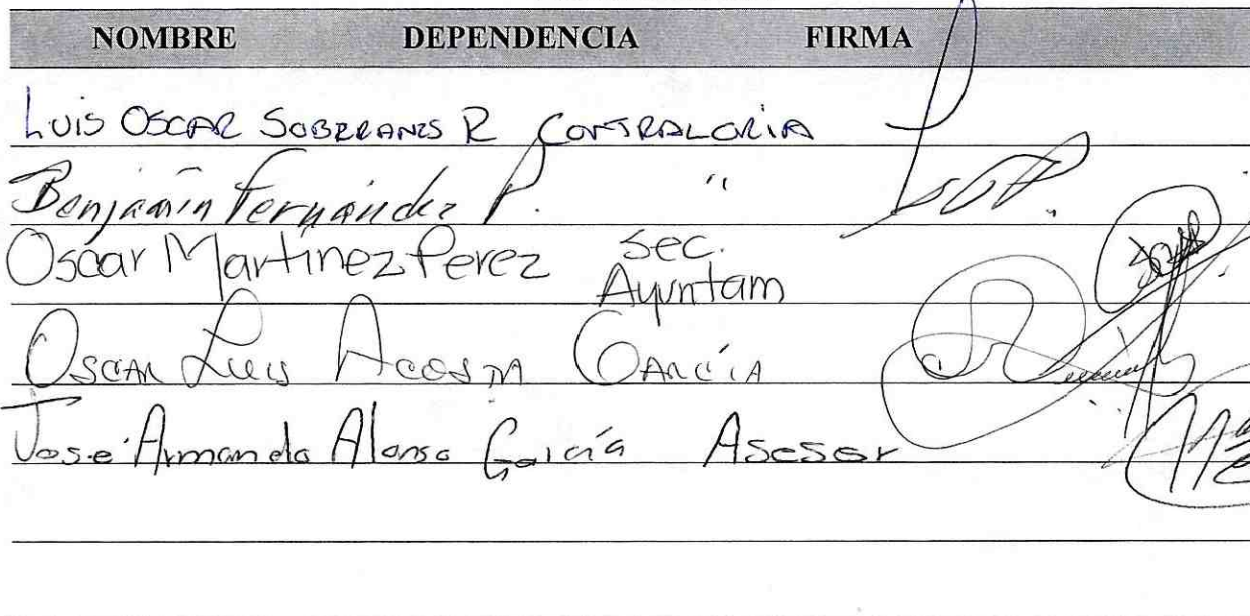 NOMBRE DEPENDENCIA FIRMA
LUIS OSCAR SOBERANES R CONTRALORIA
Benjamín Fernández P. "
Oscar Martinez Perez Sec.
Ayuntam
OSCAR Luis Acosta GARCÍA
José Armando Alonso García Asesor